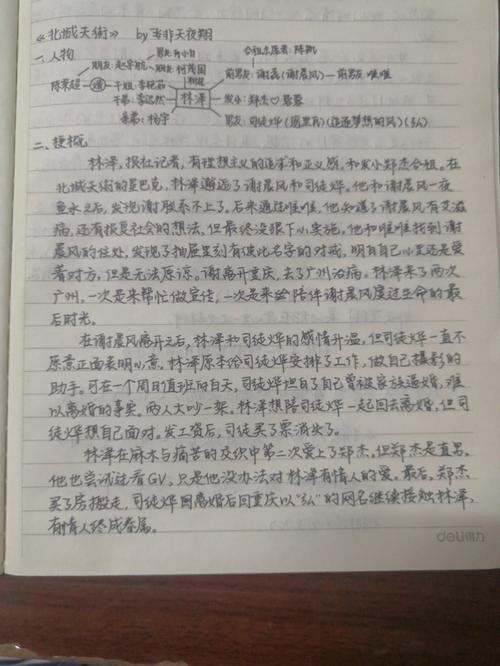 《北城天街》 by 非天夜翔
一、人物
合租志愿者：陈凯
男友：肖小白
朋友：赵宇航 朋友：柯茂国 前男友：谢磊（谢晨风）— 前男友：唯唯
陈荣超 干姐：李艳茹 林泽 发小：郑杰♡蓉蓉
干弟：李迟然 男友：司徒烨（遥里克）（追逐梦想的风）（弘）
亲弟：杨宇
二、梗概
林泽，报社记者，有理想主义的追求和正义感，和发小郑杰合租。在
北城天街的星巴克，林泽邂逅了谢晨风和司徒烨，他和谢晨风一夜
鱼水之后，发现谢联系不上了。后来通过唯唯，他知道了谢晨风有艾滋
病，还有报复社会的想法，但最终没狠下心实施。他和唯唯找到谢
晨风的住处，发现了抽屉里刻有彼此名字的对戒，明白自己心里还是爱
着对方，但是无法原谅。谢离开重庆，去了广州治病。林泽来了两次
广州，一次是来帮忙做宣传，一次是来陪伴谢晨风度过生命的最
后时光。
在谢晨风离开之后，林泽和司徒烨的感情升温，但司徒烨一直不
愿意正面表明心意。林泽原本给司徒烨安排了工作，做自己摄影的
助手。可在一个周日值班的白天，司徒烨坦白了自己曾被家族逼婚，难
以离婚的事实。两人大吵一架。林泽想陪司徒烨一起回去离婚，但司
徒烨想自己面对。发工资后，司徒买了票消失了。
林泽在麻木与痛苦的交织中第二次爱上了郑杰。但郑杰是直男。
他也尝试过看GV，只是他没办法对林泽有情人的爱。最后，郑杰
买了房搬走，司徒烨回离婚后回重庆以“弘”的网名继续接触林泽，
有情人终成眷属。
deli得力